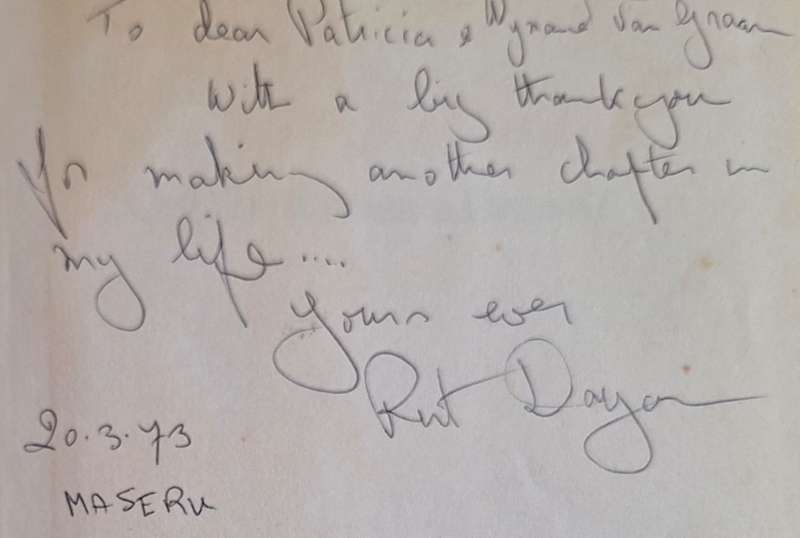 To dear Patricia & Wynand Van Graan
With a big thank you
for making another chapter in
my life....
yours ever
Rut Dayan
20.3.73
MASERU